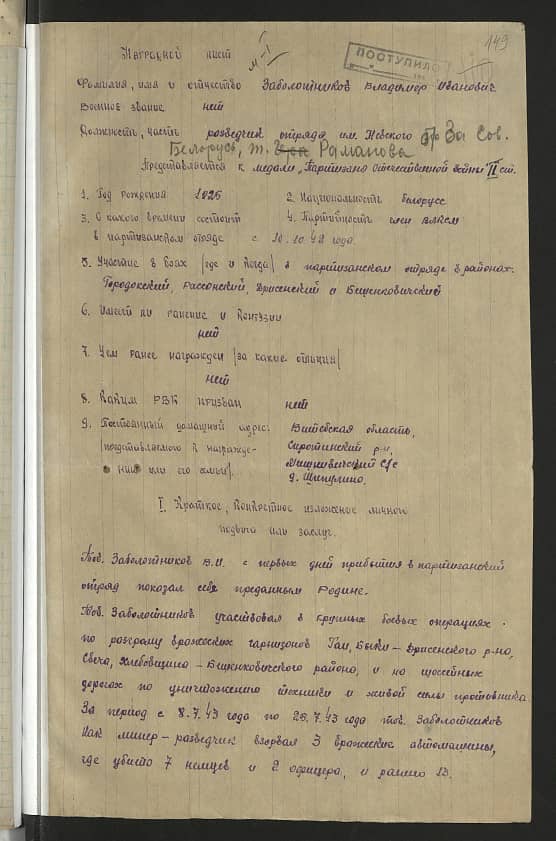 149
ПОСТУПИЛО
Наградной лист
Фамилия, имя и отчество Заболотников Владимир Иванович
Военное звание нет
Должность, часть разведчик отряда им. Невского бр За Сов.
Белорусь, т. Романова
Представляется к медали „Партизана Отечественной войны" II ст.
1. Год рождения 1926 2. Национальность белорусс
3. С какого времени состоит 4. Партийность член ВЛКСМ
в партизанском отряде с 10.10.42 года.
5. Участие в боях /где и когда/ в партизанском отряде в районах:
Городокский, Россонский, Дрисенский и Бешенковичский
6. Имеет ли ранение и контузии
нет
7. Чем ранее награжден /за какие отличия/
нет
8. Каким РВК призван нет
9. Постоянный домашний адрес: Витебская область,
/представляемого к награжде- Сиротинский р-н,
нию или его семьи/. С/с
д. Шипулино.
I. Краткое, конкретное изложение личного
подвига или заслуг.
Тов. Заболотников В.И. с первых дней прибытия в партизанский
отряд показал себя преданным Родине.
Тов. Заболотников участвовал в крупных боевых операциях
по разгрому вражеских гарнизонов Быки – Дрисенского р-на,
Свеча, Хлебовщино – Бешенковичского района, и на шоссейных
дорогах по уничтожению техники и живой силы противника.
За период с 8.7.43 года по 26.7.43 года тов. Заболотников
как минер – разведчик взорвал 3 вражеские автомашины,
где убито 7 немцев и 2 офицера, и ранено 13.